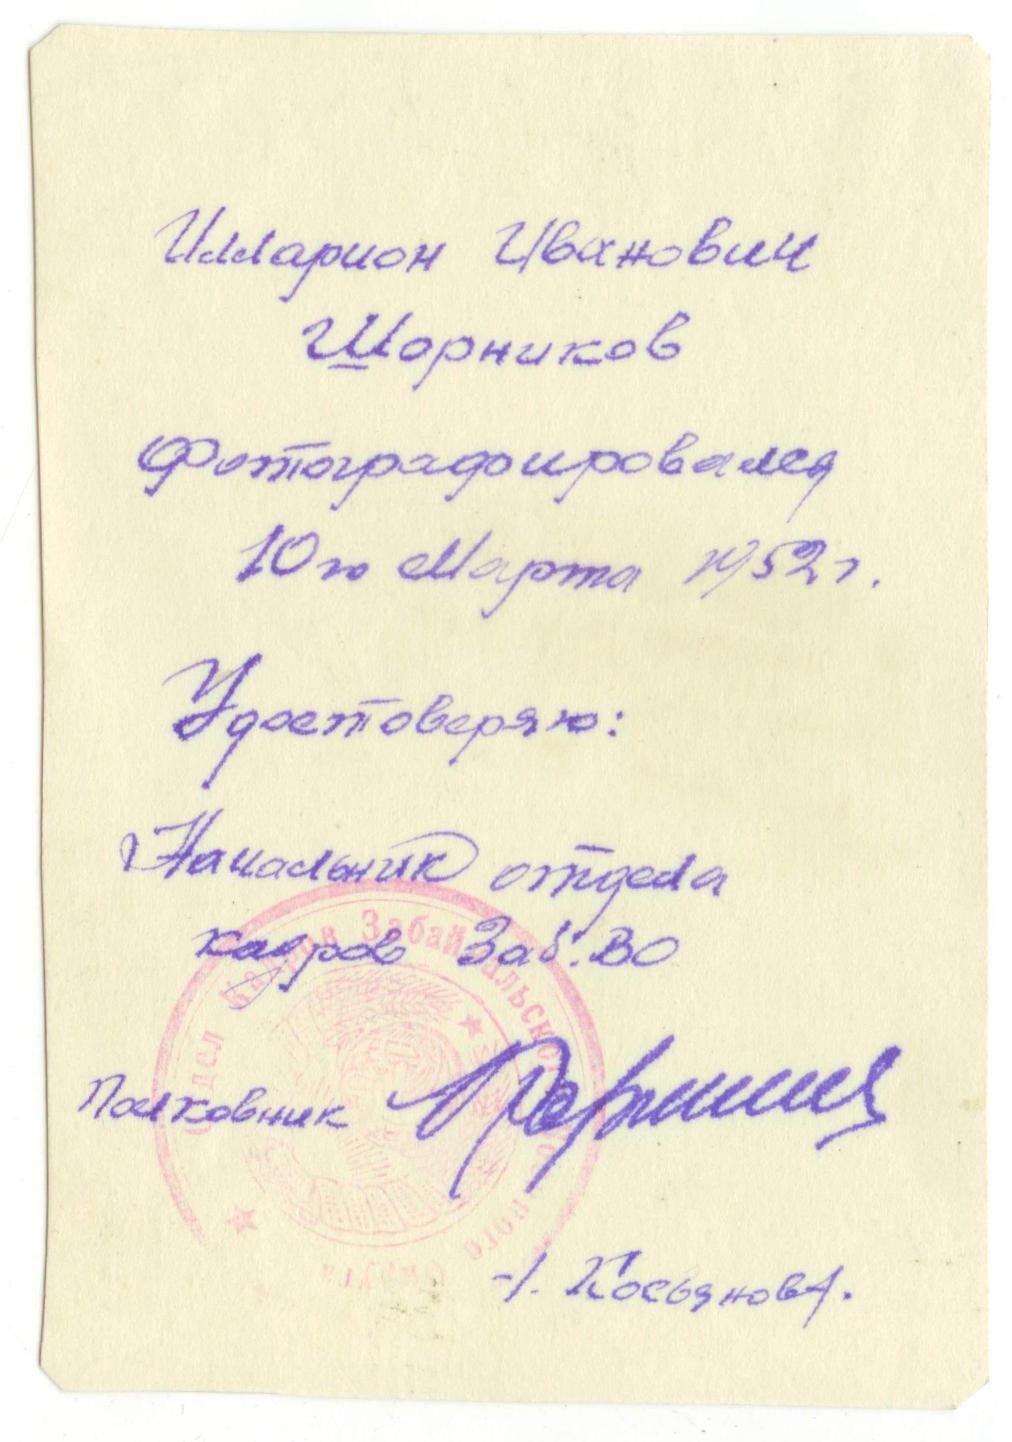 Илларион Иванович
Шорников
Фотографировался
10го Марта 1952г.
Удостоверяю:
Начальник отдела
кадров Заб.ВО
Полковник
Отдел Кадров Забайкальского
Округа